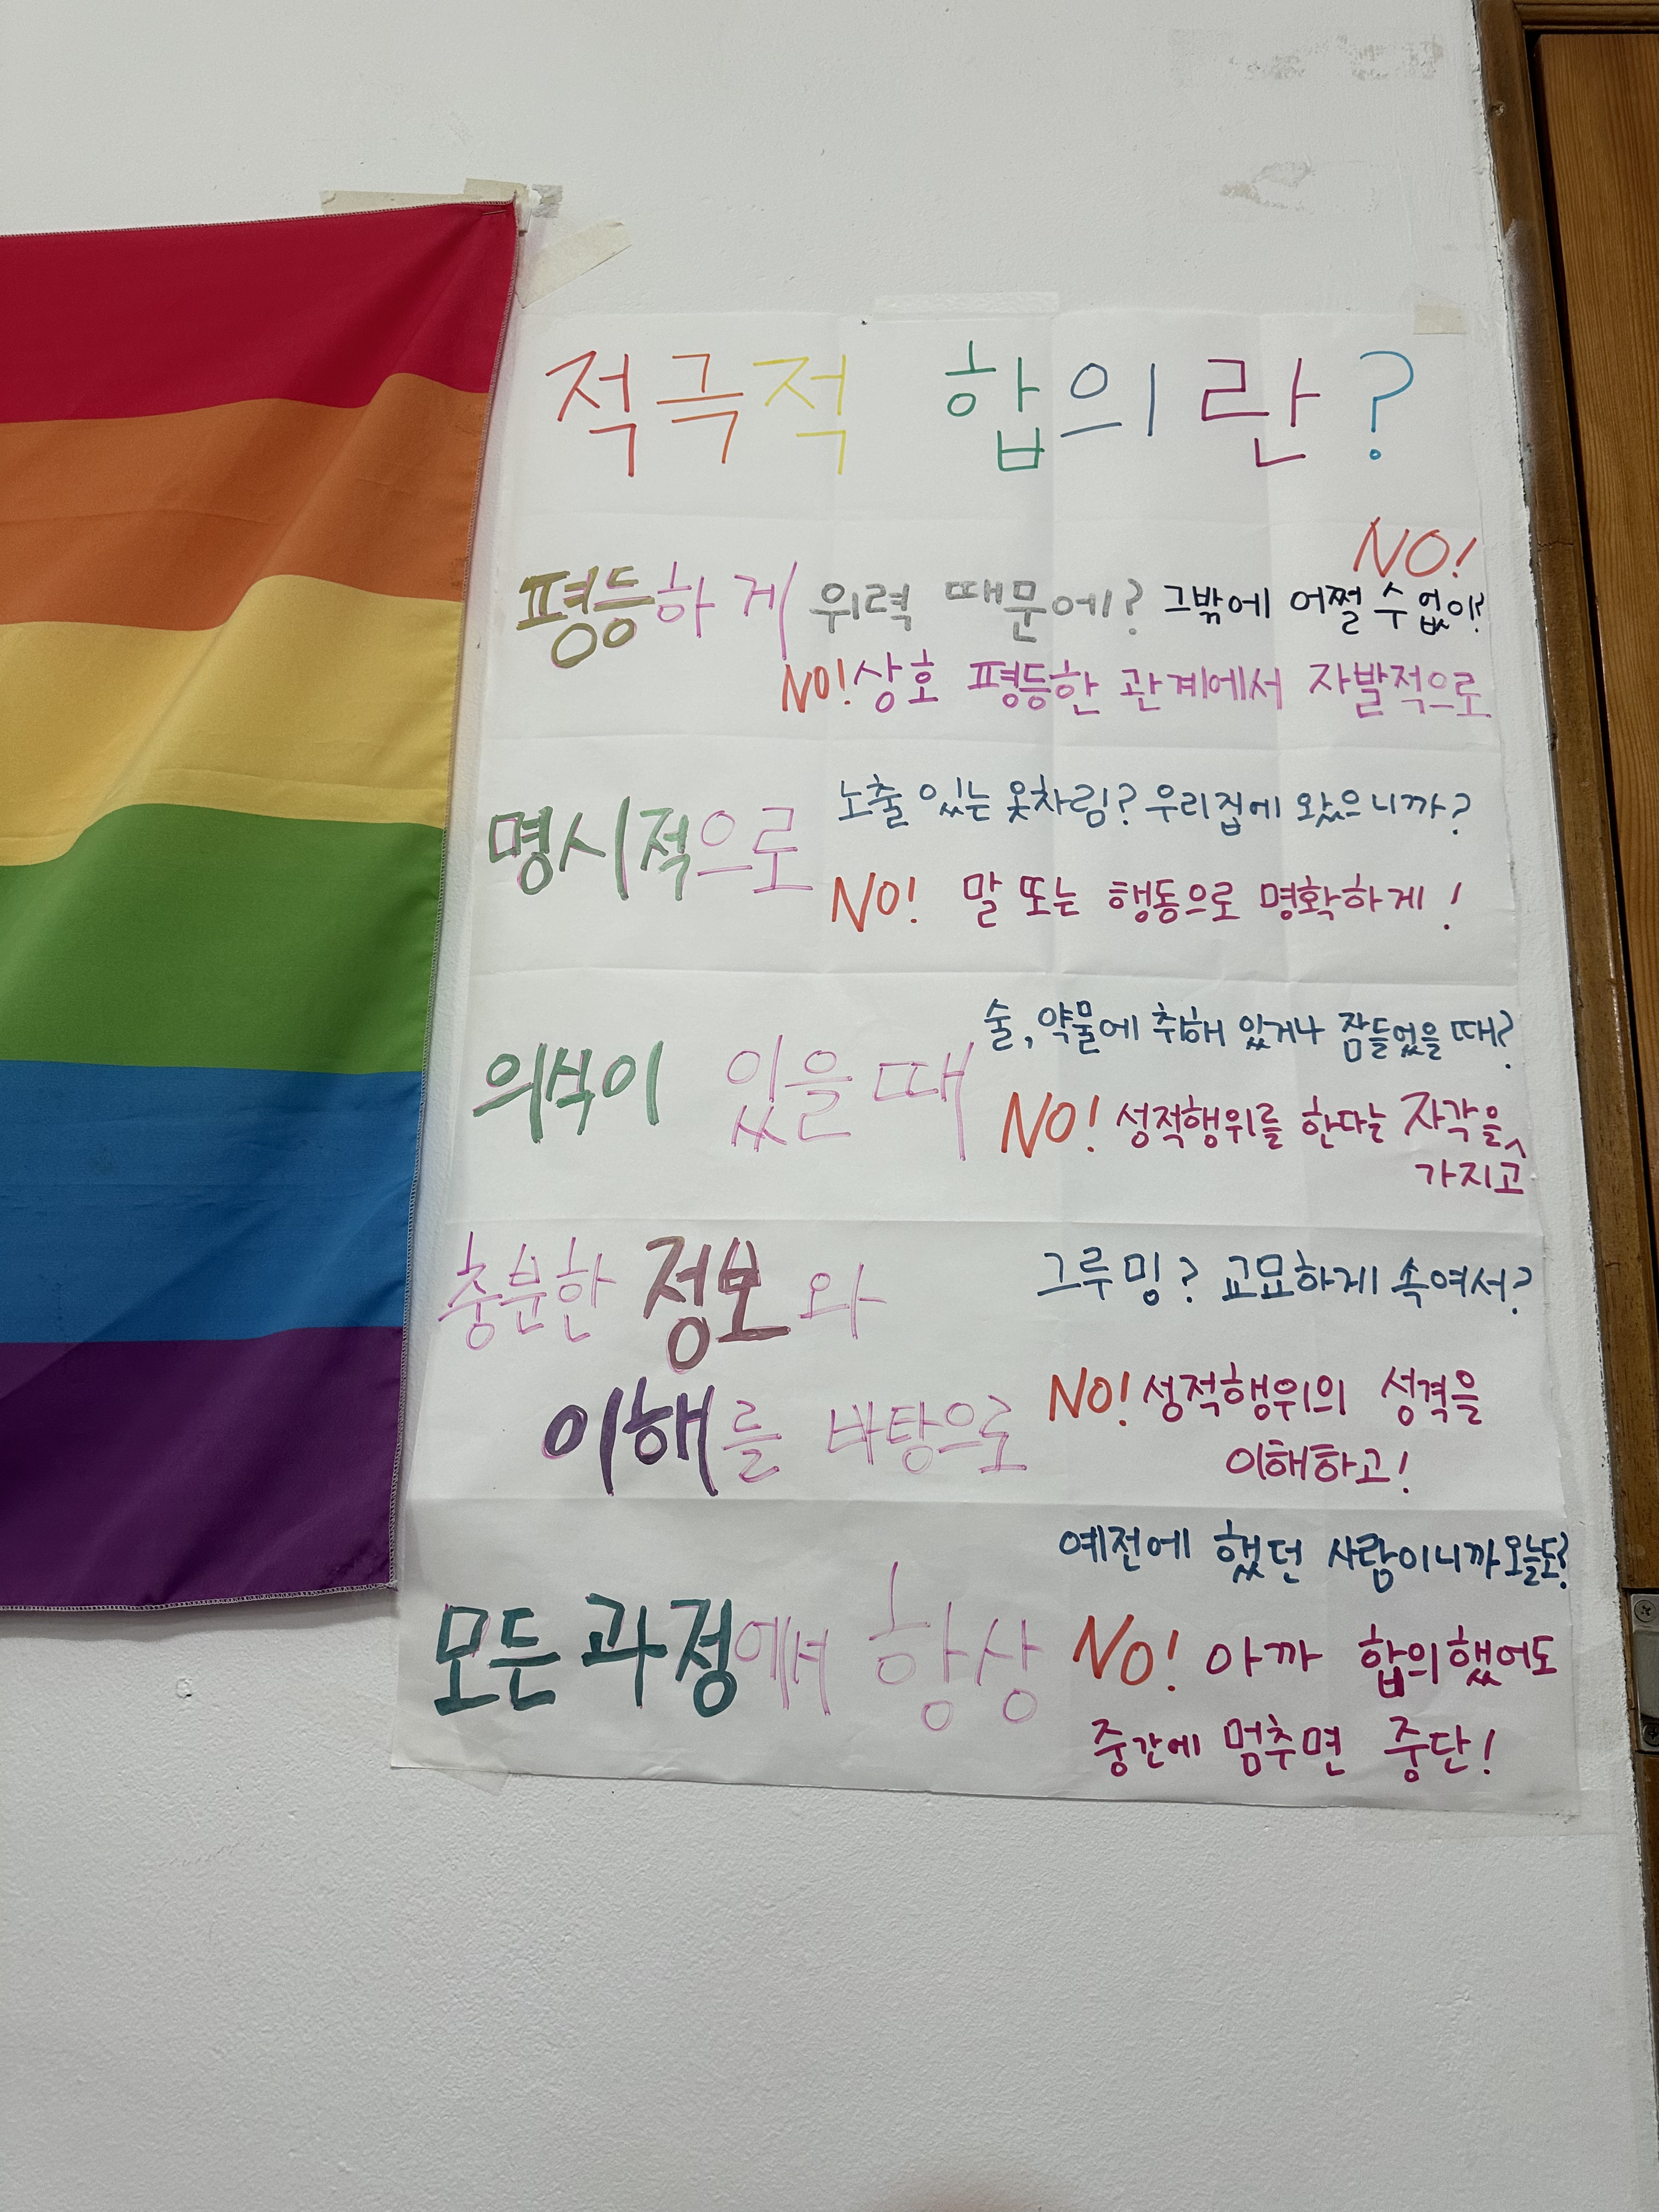 적극적 합의란?
NO!
평등하게 위력 때문에? 그밖에 어쩔 수 없이?
NO! 상호 평등한 관계에서 자발적으로
명시적으로 노출 있는 옷차림? 우리집에 왔으니까?
NO! 말 또는 행동으로 명확하게!
의식이 있을 때 술, 약물에 취해 있거나 잠들었을 때?
NO! 성적행위를 한다는 자각을
가지고
충분한 정보와 그루밍? 교묘하게 속여서?
이해를 바탕으로 NO! 성적행위의 성격을
이해하고!
예전에 했던 사람이니까 오늘도?
모든 과정에서 항상 NO! 아까 합의했어도
중간에 멈추면 중단!